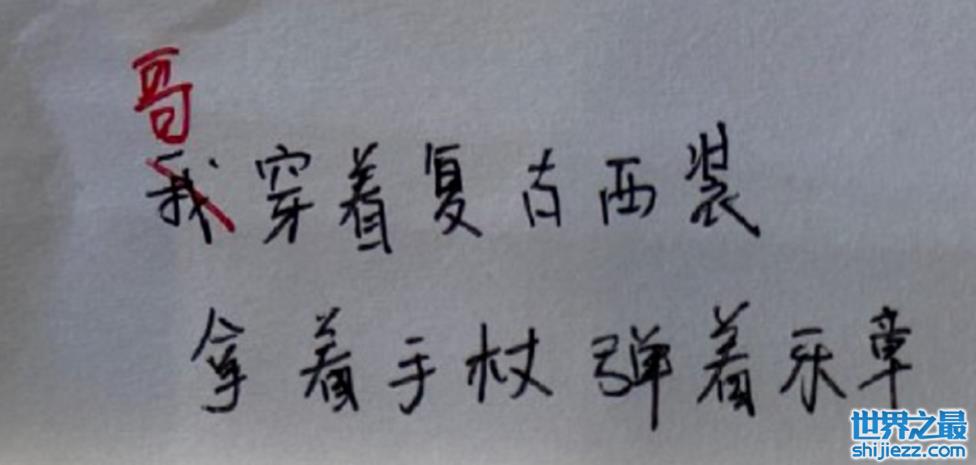 哥
我穿着复古西装
拿着手杖 弹着乐章
世界之最
shijiezz.com